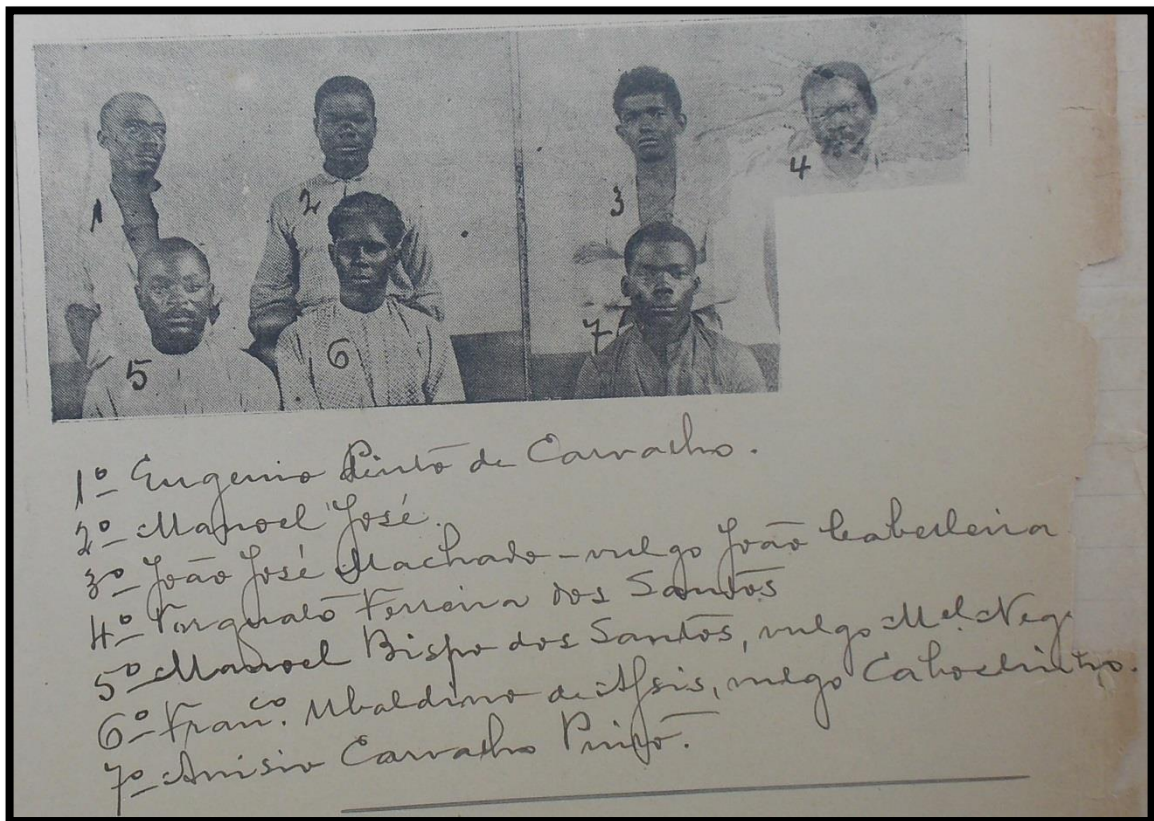 1 2 3 4
5 6 7
1º Eugenio Pinto de Carvalho.
2º Manoel José.
3º João José Machado - vulgo João Cabelleira
4º Torquato Ferreira dos Santos
5º Manoel Bispo dos Santos, vulgo Mel. Neg
6º Franco. Ubaldino de Assis, vulgo Caboclinho.
7º Anisio Carvalho Pinto.